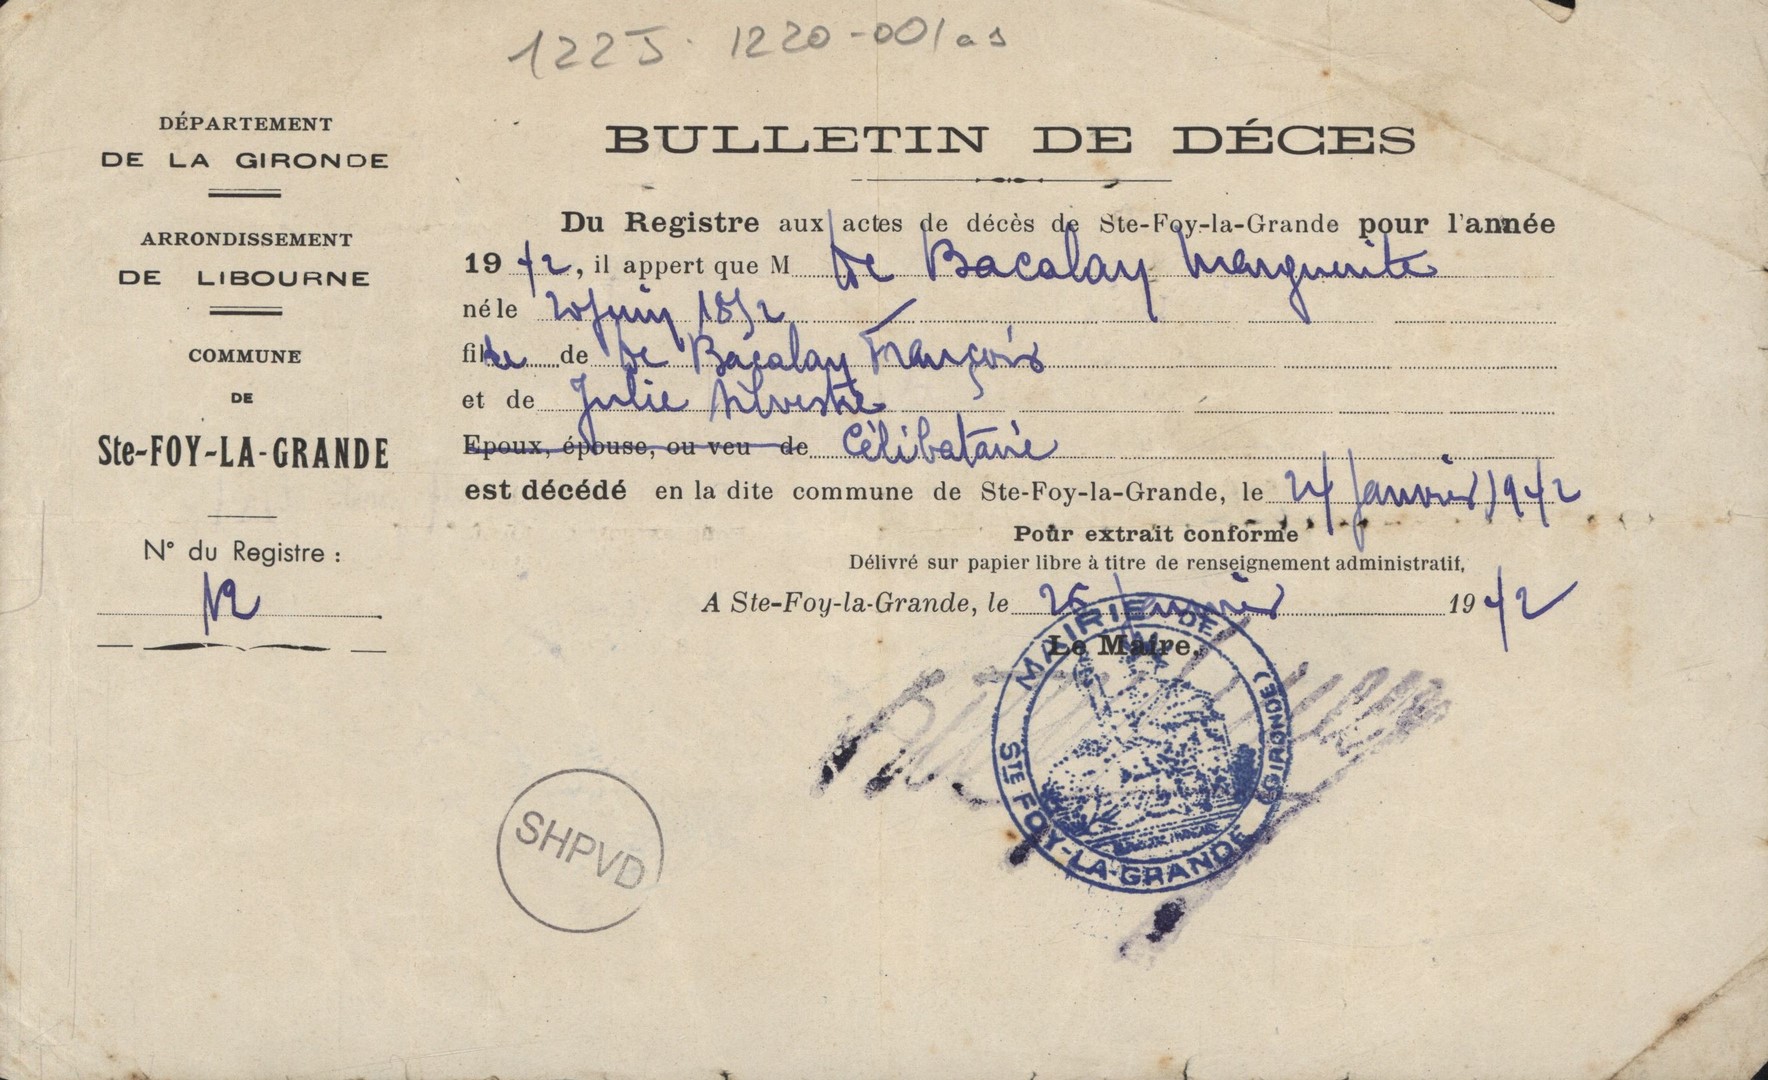 122J. 1220-001as
DÉPARTEMENT
DE LA GIRONDE
ARRONDISSEMENT
DE LIBOURNE
COMMUNE
DE
Ste-FOY-LA-GRANDE
N° du Registre :
12
BULLETIN DE DÉCES
Du Registre aux actes de décès de Ste-Foy-la-Grande pour l'année
1942, il appert que M de Bacalay Marguerite
né le 20 juin 1852
fille de de Bacalay François
et de Julie Silvestre
Epoux, épouse, ou veu de Célibataire
est décédé en la dite commune de Ste-Foy-la-Grande, le 24 janvier 1942
Pour extrait conforme
Délivré sur papier libre à titre de renseignement administratif,
A Ste-Foy-la-Grande, le 25 janvier 1942
Le Maire,
MAIRIE DE STE FOY-LA-GRANDE (GIRONDE)
SHPVD